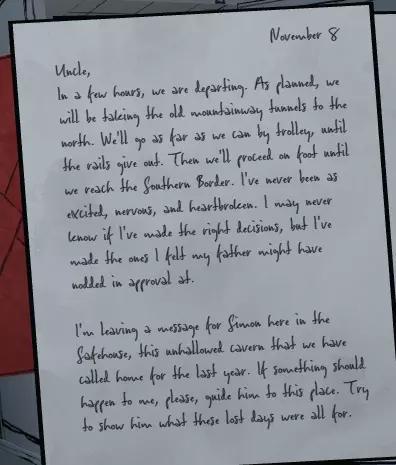 November 8
Uncle,
In a few hours, we are departing. As planned, we
will be taking the old mountainway tunnels to the
north. We'll go as far as we can by trolley, until
the rails give out. Then we'll proceed on foot until
we reach the Southern Border. I've never been as
excited, nervous, and heartbroken. I may never
know if I've made the right decisions, but I've
made the ones I felt my father might have
nodded in approval at.
I'm leaving a message for Simon here in the
Safehouse, this unhallowed cavern that we have
called home for the last year. If something should
happen to me, please, guide him to this place. Try
to show him what these lost days were all for.